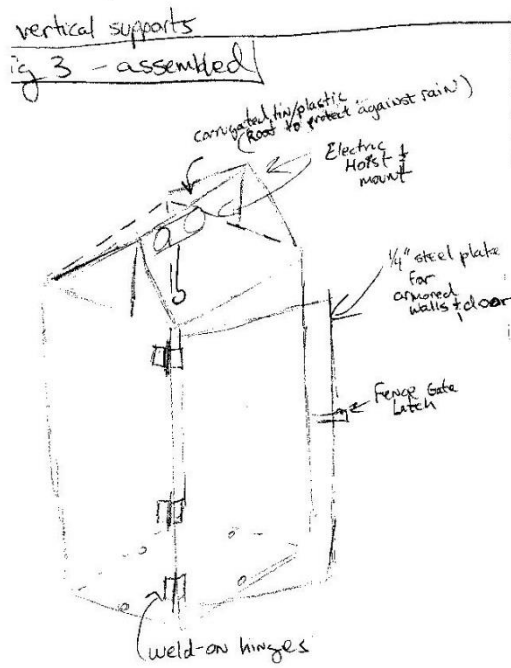 vertical supports
ig 3 - assembled
corrugated tin/plastic
(Roof to protect against rain)
Electric
Hoist &
mount
1/4" steel plate
for
armored
walls + door
Fence Gate
Latch
weld-on hinges